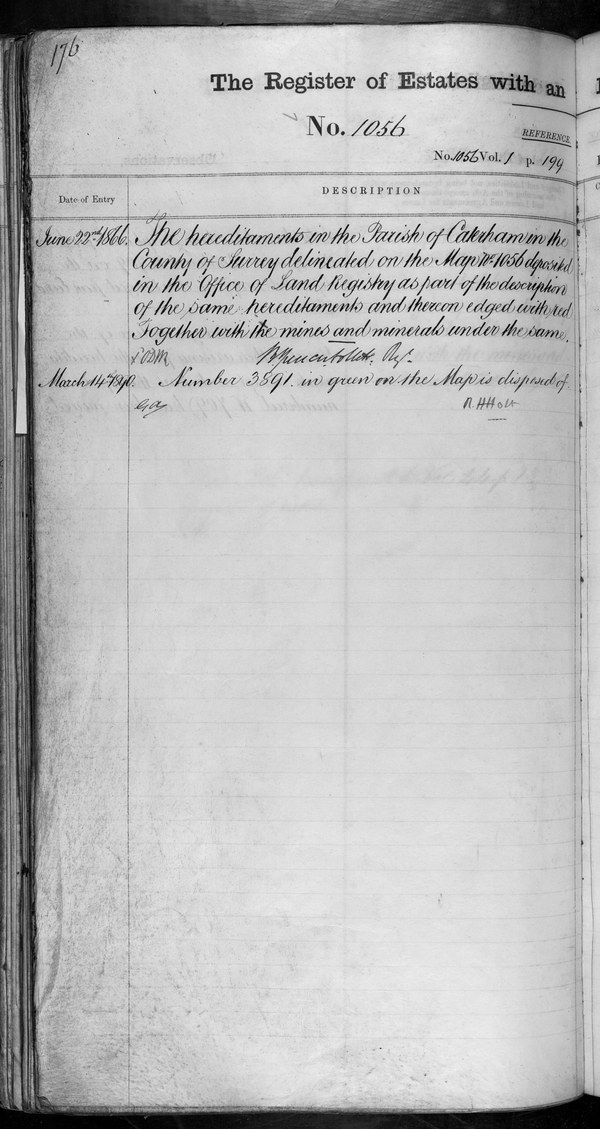 176
The Register of Estates with an
No. 1056
REFERENCE
No. 1056 Vol. 1 p. 199
Date of Entry
DESCRIPTION
June 22nd 1866. The hereditaments in the Parish of Caterham in the
County of Surrey delineated on the Map No. 1056 deposited
in the Office of Land Registry as part of the description
of the same hereditaments and thereon edged with red
Together with the mines and minerals under the same.
March 14th 1890. Number 3591 in green on the Map is disposed of
R. H Holt